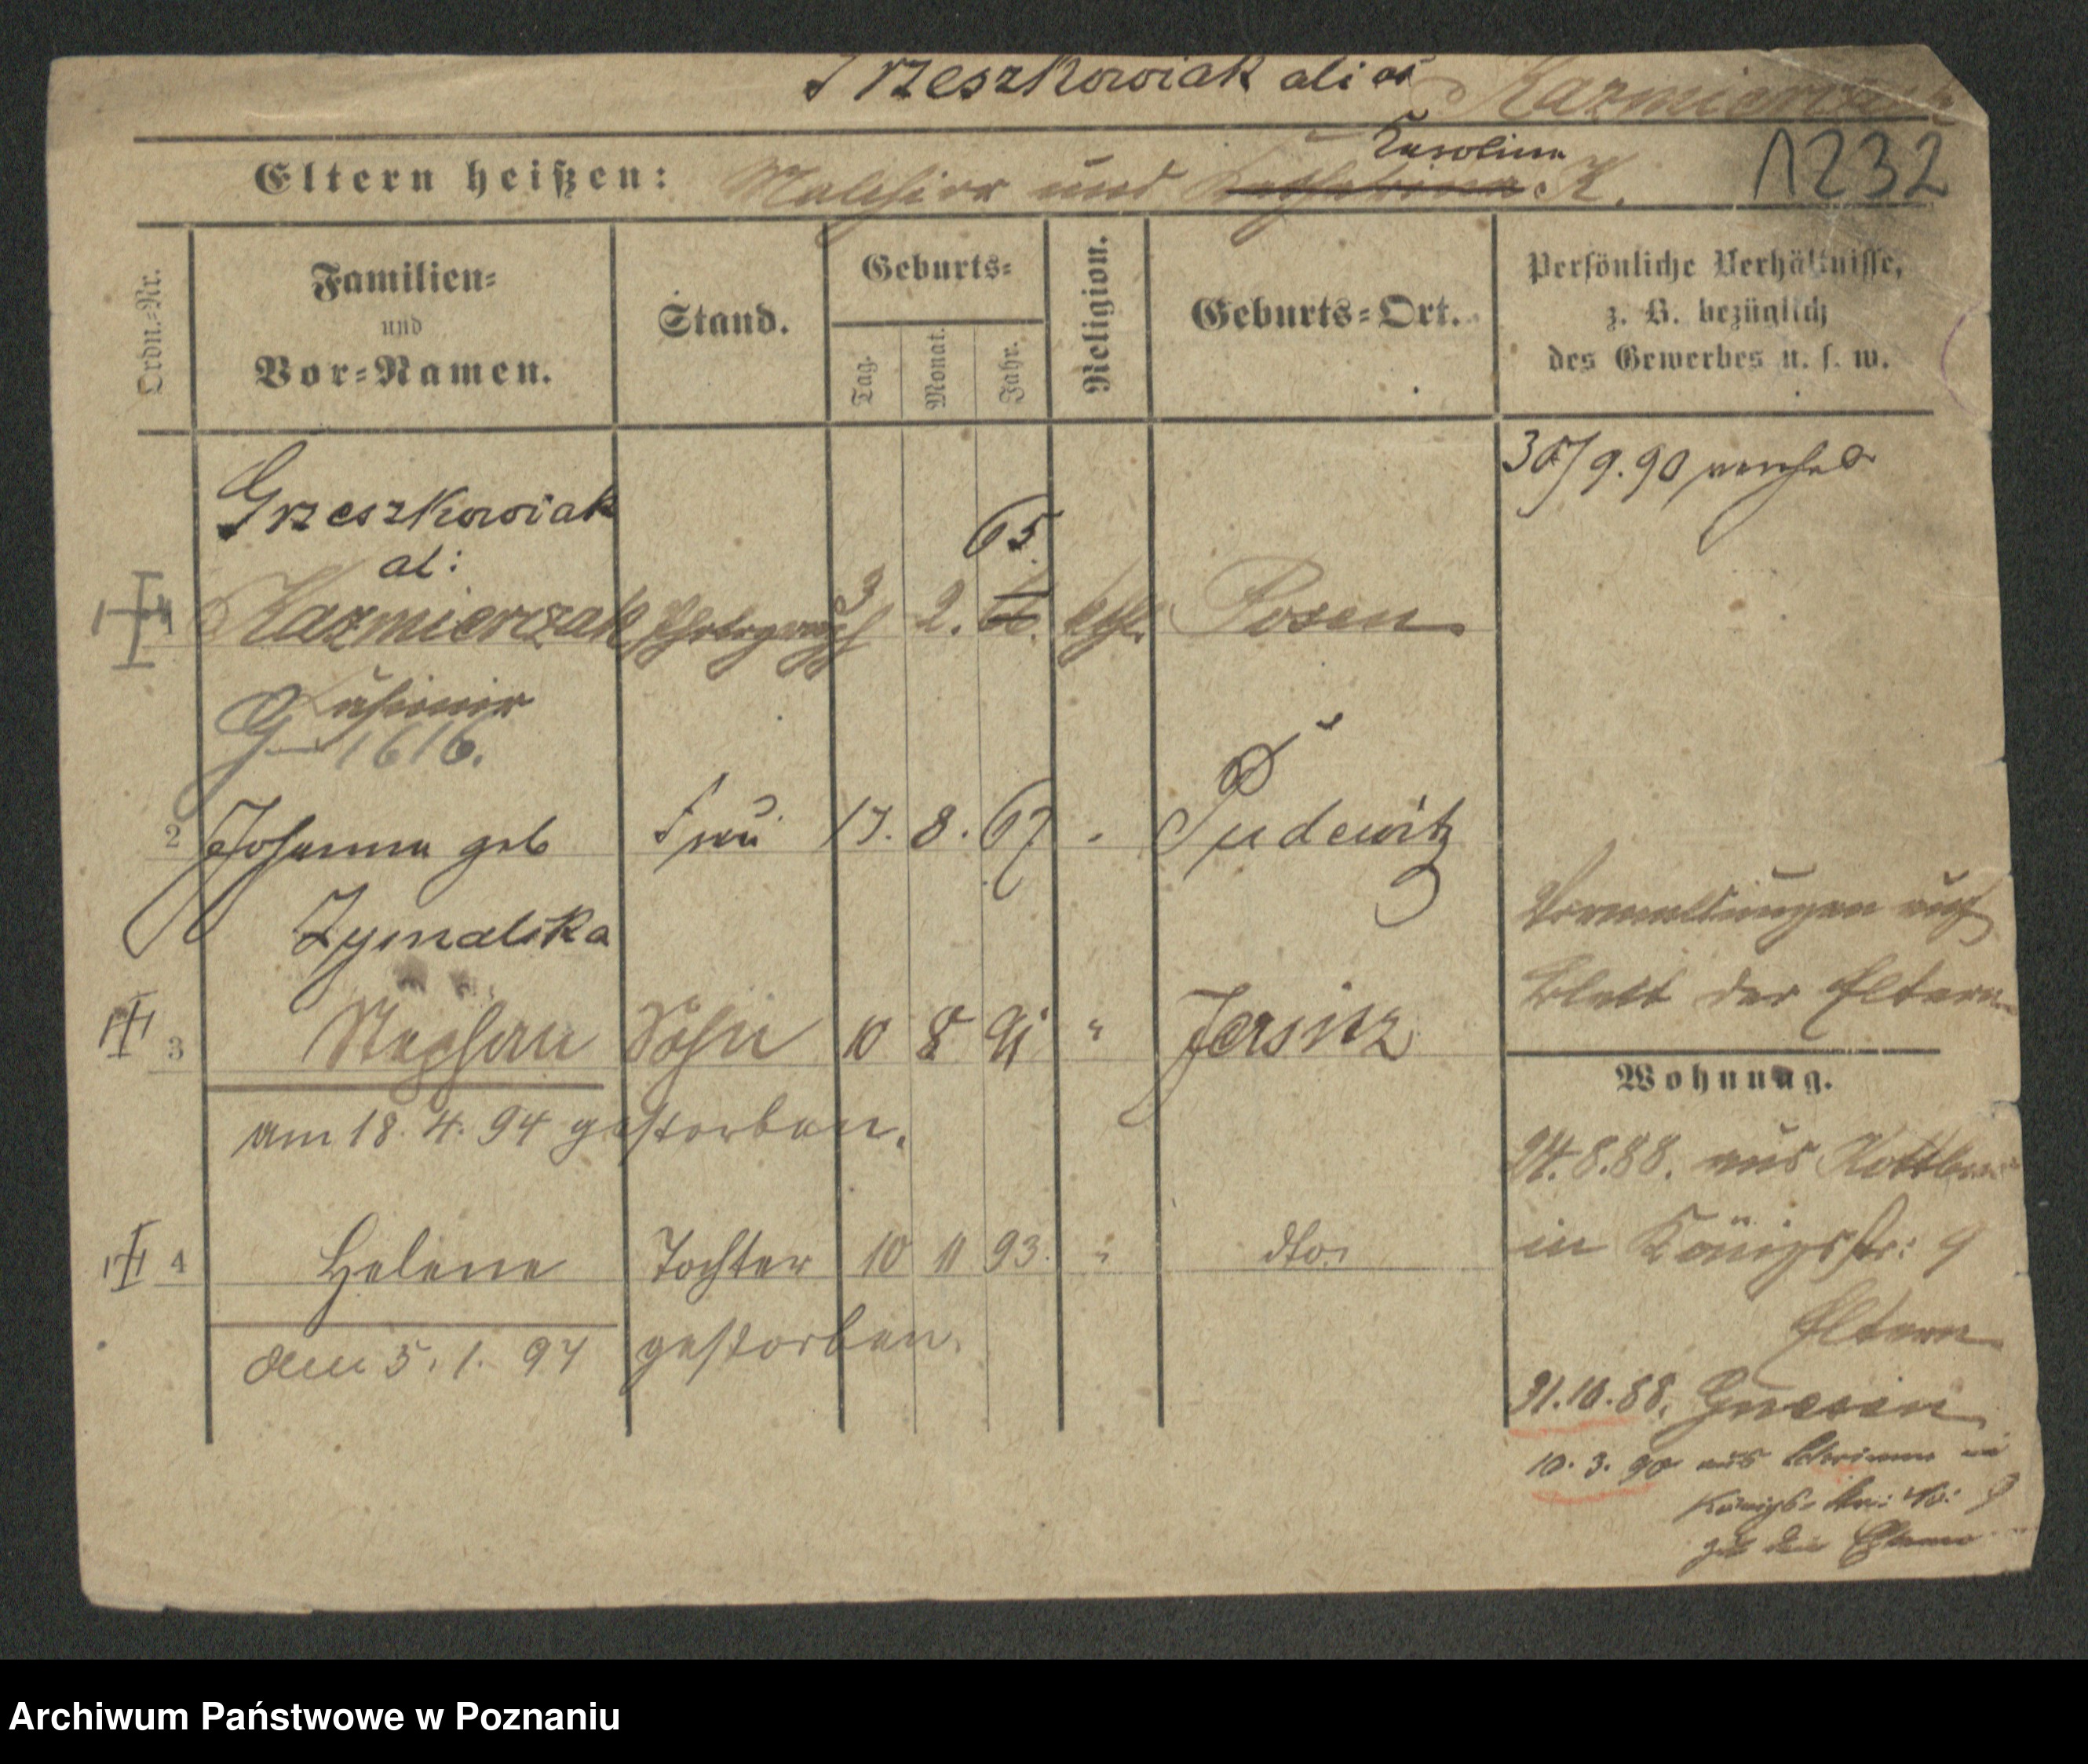 Grzeszkowiak alias Kazmierczak
Eltern heißen: und Karolina K.
1232
Ordn.-Nr.
Familien-
und
Vor-Namen.
Stand.
Geburts-
Tag.
Monat.
Jahr.
Religion.
Geburts-Ort.
Persönliche Verhältnisse,
z. B. bezüglich
des Gewerbes u. s. w.
30/9.90
Grzeszkowiak
al:
65
Kazmierczak 3 2. kath. Posen
Kasimir
G 1616.
2 Johanna geb Frau 17. 8. 67 " Pudewitz
Zymalska
3 Stephan Sohn 10 8 91 " Jersitz
am 18. 4. 94 gestorben.
4 Helene Tochter 10 11 93. " dto.
den 5. 1. 94 gestorben.
auf
Blatt der Eltern
Wohnung.
24.8.88. aus
in Königsstr: 9
Eltern
31.10.88. Gnesen
10. 3. 90 aus Schrimm in
Königs- Str: No: 9
zu den Eltern
Archiwum Państwowe w Poznaniu